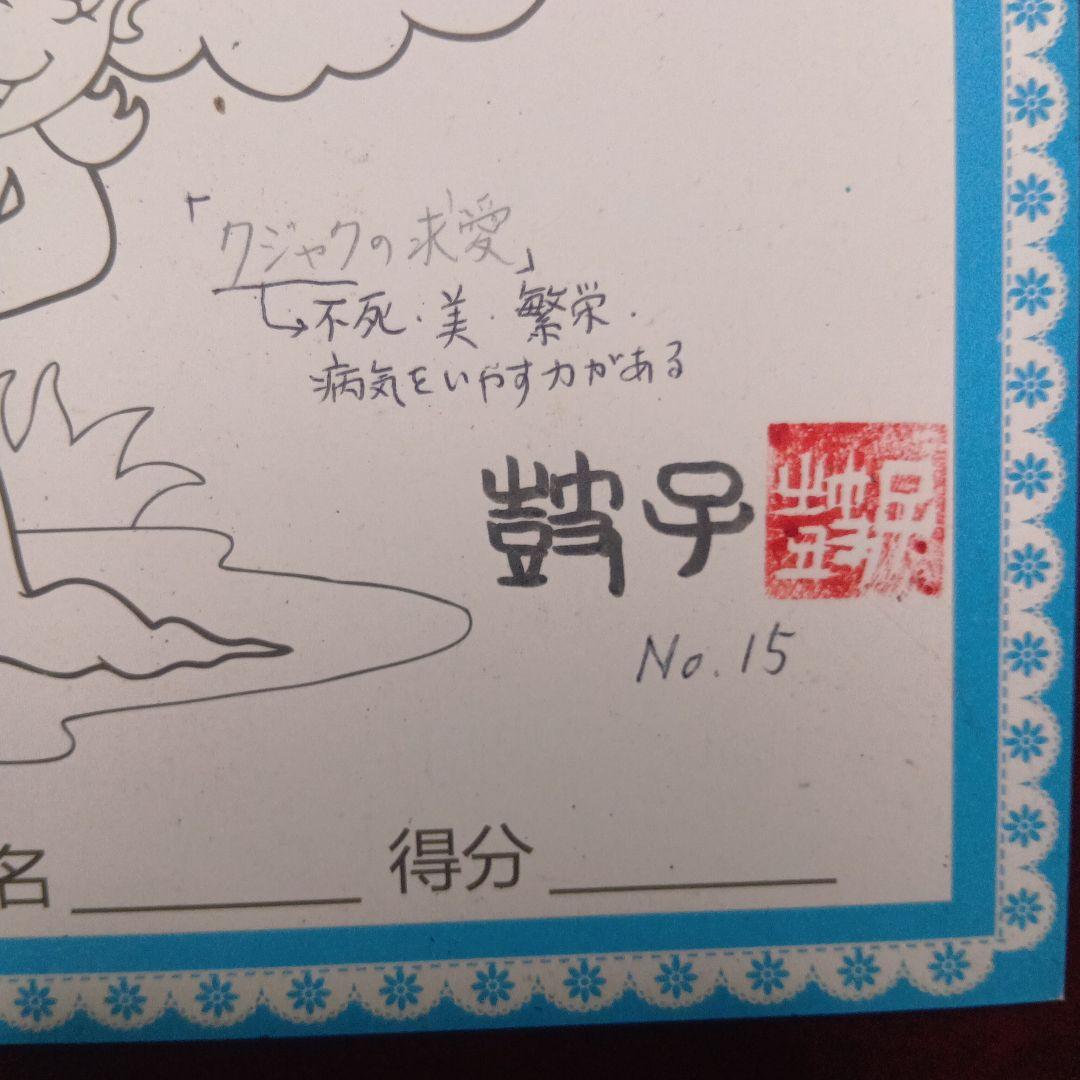 「クジャクの求愛」
不死・美・繁栄・
病気をいやす力がある
鼓子
No. 15
名 得分